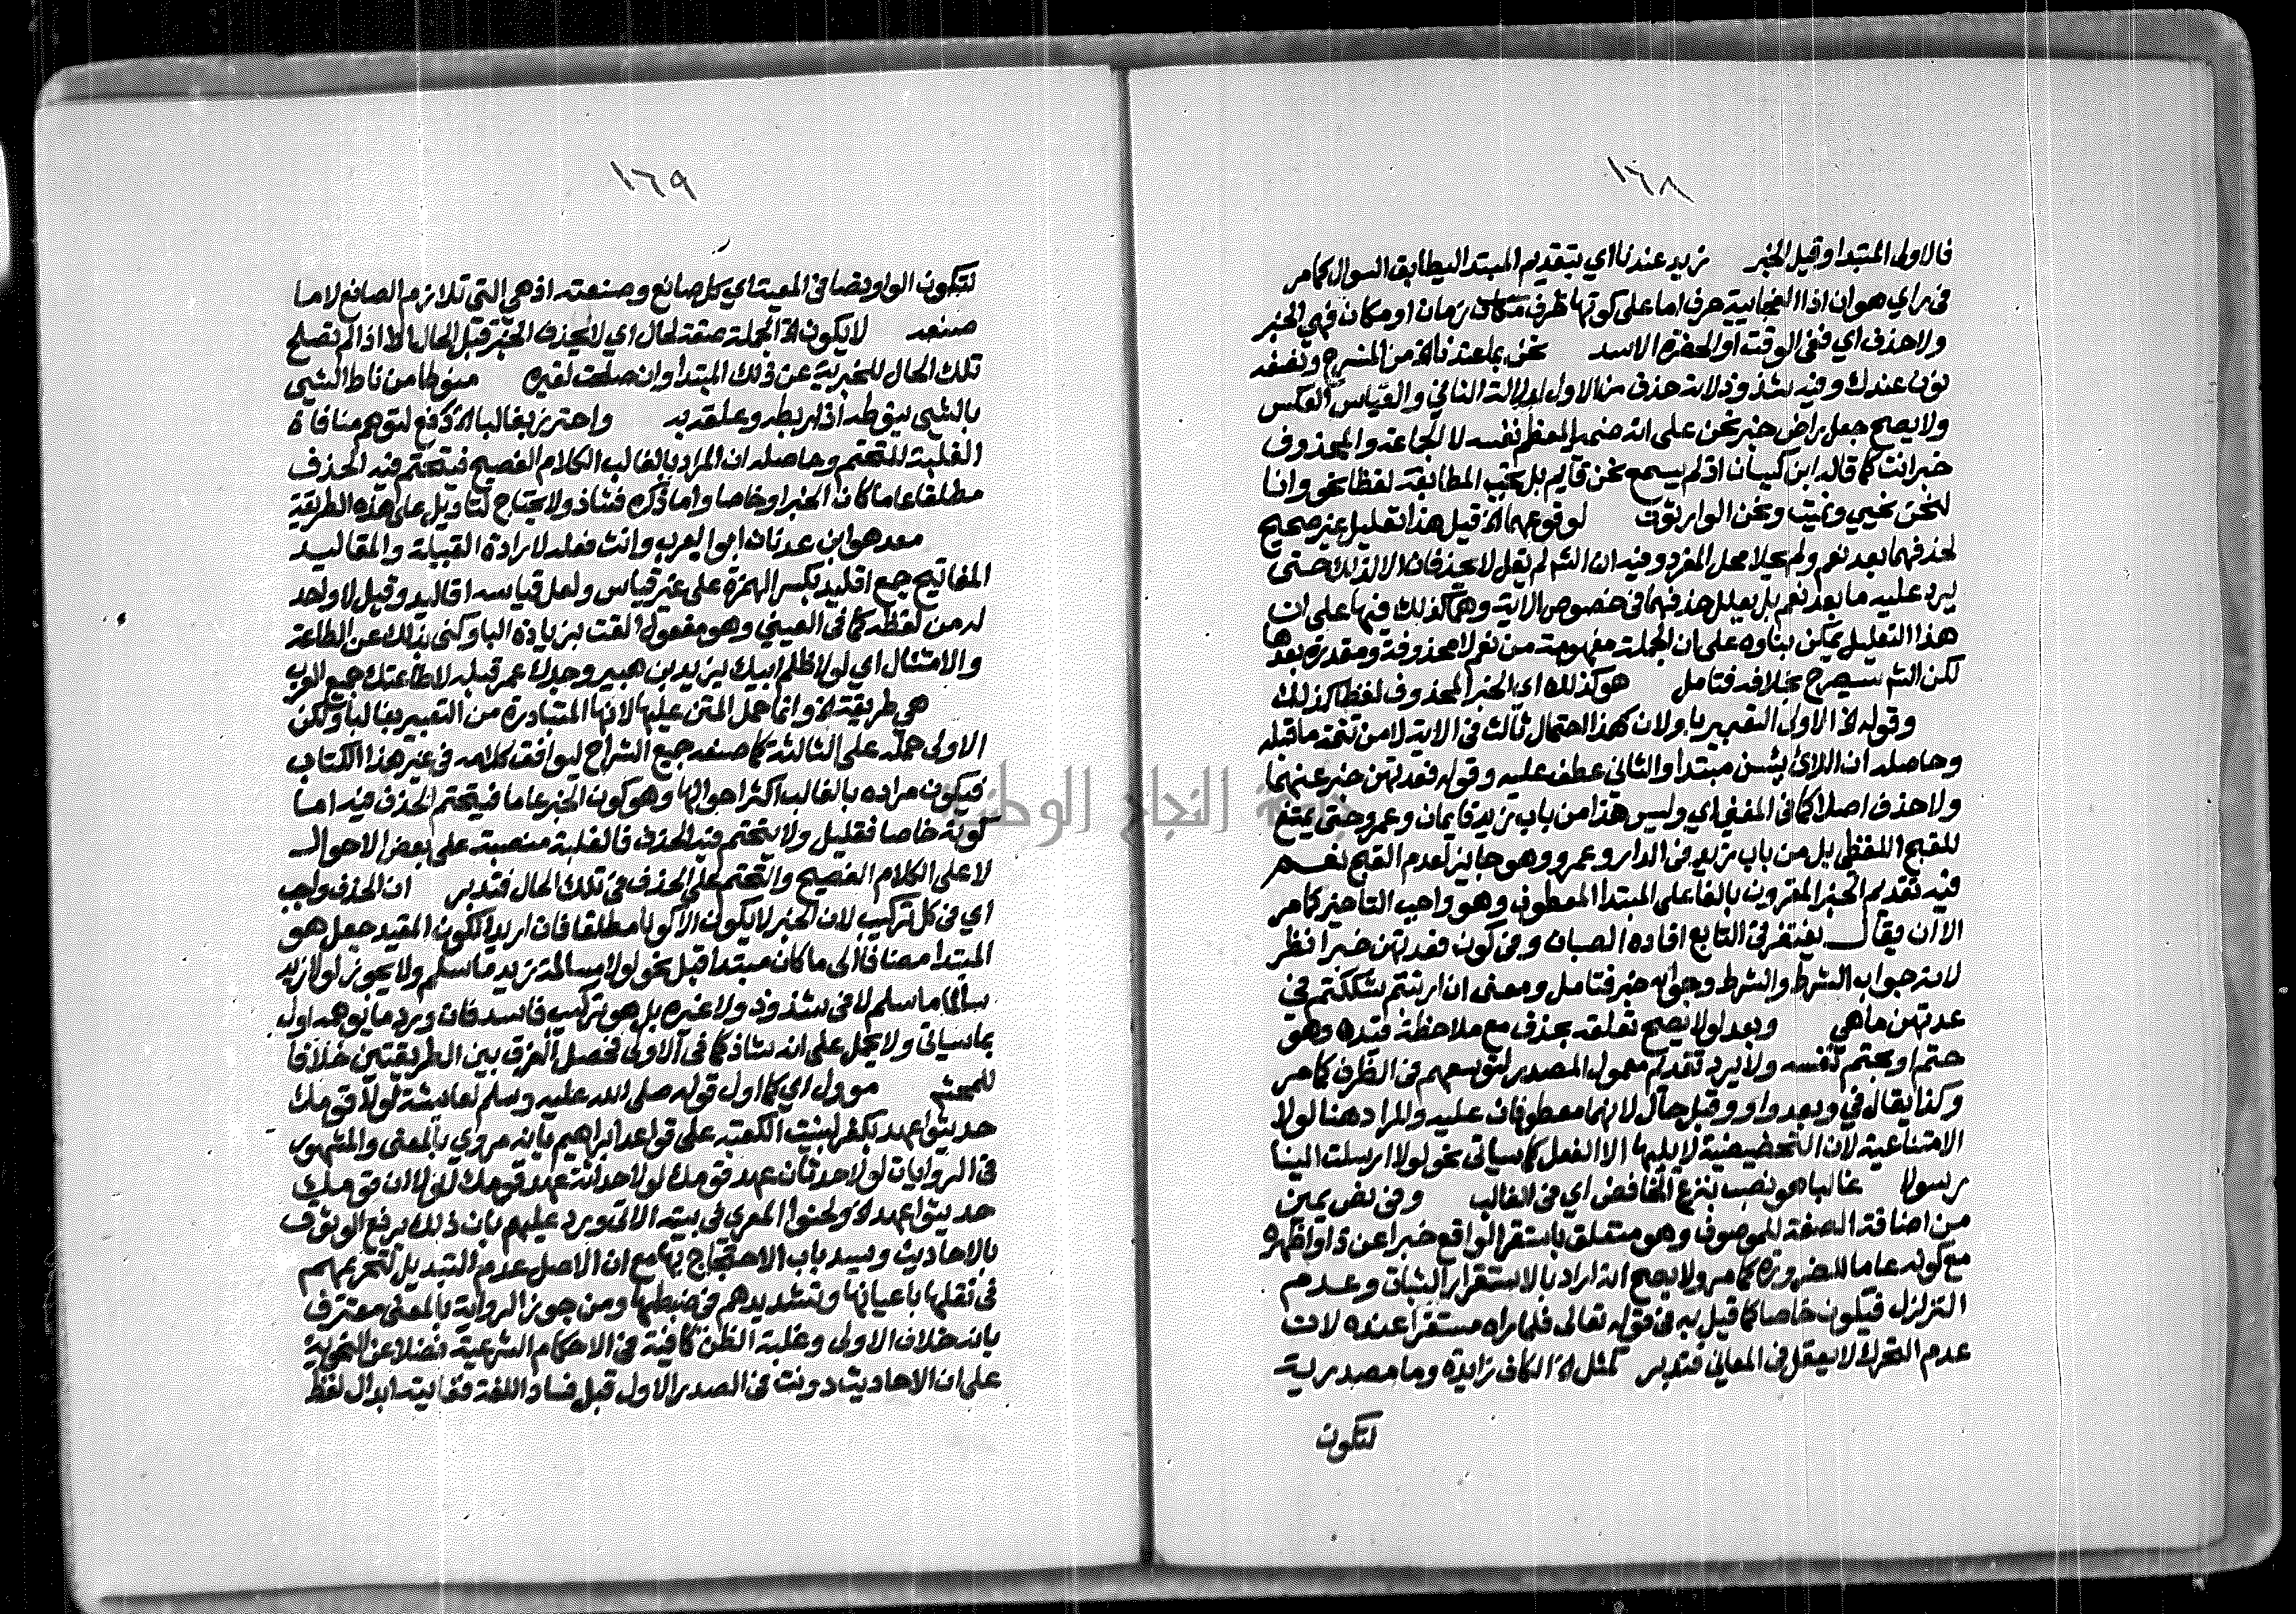 ١٦٨
فالاولى المبتدا وقيل الخبر زيد عندنا اي بتقديم المبتدا ليطابق السوال كما مر
في راي هو ان اذا الفجائية حرف اما على كونها ظرف مكان زمان او مكان فهي الخبر
ولا حذف اي ففي الوقت او الحضرة الاسد نحن بما عندنا الخ من المنسرح ونصفه
نون عندك وفيه شذوذ لانه حذف من الاول لدلالة الثاني والقياس العكس
ولا يصح جعل راض خبر نحن على انه ضمير المعظم نفسه لا للجماعة والمحذوف
خبر انت كما قاله ابن كيسان اذ لم يسمع نحن قايم بل يجب المطابقة لفظا نحو وانا
لنحن نحيي ونميت ونحن الوارثون لوقوعهما الخ قيل هذا تعليل غير صحيح
لحذفهما بعد نعم ولم يحلا محل المفرد وفيه ان الش لم يقل لا يحذفان الا لذلك حتى
يرد عليه ما بعد نعم بل يعلل حذفهما في خصوص الاية وهما كذلك فيها على ان
هذا التعليل يمكن بناوه على ان الجملة مفهومة من نعم لا محذوفة ومقدرة بعدها
لكن الش سيصرح بخلافه فتامل هو كذلك اي الخبر المحذوف لفظ كذلك
وقوله الخ الاولى التعبير باو لان هذا احتمال ثالث في الاية لا من تتمة ما قبله
وحاصله ان اللائي يئسن مبتدا والثاني عطف عليه وقوله فعدتهن خبر عنهما
ولا حذف اصلا كما في المغني اي وليس هذا من باب زيد قايمان وعمرو حتى يمتنع
للقبح اللفظي بل من باب زيد في الدار وعمرو وهو جايز لعدم القبح نعم
فيه تقديم الخبر المقرون بالفا على المبتدا المعطوف وهو واجب التاخير كما مر
الا ان يقال يغتفر في التابع افاده الصبان وفي كون فعدتهن خبرا نظر
لانه جواب الشرط والشرط وجوابه خبر فتامل ومعنى ان ارتبتم شككتم في
عدتهن ما هي وبعد لولا يصح تعلقه بحذف مع ملاحظة قيده وهو
حتم او بحتم نفسه ولا يرد تقديم معمول المصدر لتوسعهم في الظرف كما مر
وكذا يقال في وبعد واو وقبل حال لانهما معطوفان عليه والمراد هنا لولا
الامتناعية لان التحضيضية لا يليها الا الفعل كما سياتي نحو لولا ارسلت الينا
رسولا غالبا هو نصب بنزع الخافض اي في الغالب وفي نص يمين
من اضافة الصفة للموصوف وهو متعلق باستقر الواقع خبرا عن ذا واظهره
مع كونه عاما للضرورة كما مر ولا يصح انه اراد بالاستقرار الثبات وعدم
التزلزل فيكون خاصا كما قيل به في قوله تعالى فلما راه مستقرا عنده لان
عدم التحرك لا يعقل في المعاني فتدبر كمثل الخ الكاف زايدة وما مصدرية
لتكون
١٦٩
لتكون الواو نصا في المعية اي كل صانع وصنعته اذ هي التي تلازم الصانع لا ما
صنعه لا يكون الخ الجملة صفة لحال اي لا يحذف الخبر قبل الحال الا اذا لم تصلح
تلك الحال للخبرية عن ذلك المبتدا وان صلحت لغيره منوطا من ناط الشي
بالشي ينوطه اذا ربطه وعلقه به واحترز بغالبا الخ دفع لتوهم منافاة
الغلبة للتحتم وحاصله ان المراد بالغالب الكلام الفصيح فيتحتم فيه الحذف
مطلقا عاما كان الخبر او خاصا واما ذكره فشاذ ولا يحتاج لتاويل على هذه الطريقة
معد هو ابن عدنان ابو العرب وانث فعله لارادة القبيلة والمقاليد
المفاتيح جمع اقليد بكسر الهمزة على غير قياس ولعل قياسه اقاليد وقيل لا واحد
له من لفظه كما في العيني وهو مفعول القت بزيادة البا وكنى بذلك عن الطاعة
والامتثال اي لولا ظلم ابيك يزيد بن هبير وجدك عمر قبله لاطاعتك جميع العرب
هي طريقة الخ وانما حمل المتن عليها لانها المتبادرة من التعبير بغالبا ولكن
الاولى حمله على الثالثة كما صنعه جميع الشراح ليوافق كلامه في غير هذا الكتاب
فيكون مراده بالغالب اكثر احوالها وهو كون الخبر عاما فيتحتم الحذف فيه اما
كونه خاصا فقليل ولا يتحتم فيه الحذف فالغلبة منصبة على بعض الاحوال
لا على الكلام الفصيح والتحتم على الحذف في تلك الحال فتدبر ان الحذف واجب
اي في كل تركيب لان الخبر لا يكون الا كونا مطلقا فان اريد الكون المقيد جعل هو
المبتدا مضافا الى ما كان مبتدا قبل نحو لولا مسالمة زيد ما سلم ولا يجوز لولا زيد
سالما ما سلم لا في شذوذ ولا غيره بل هو تركيب فاسد فان ورد ما يوهمه اول
بما سياتي ولا يحمل على انه شاذ كما في الاولى فحصل الفرق بين الطريقتين خلافا
للمحشي موول اي كما اول قوله صلى الله عليه وسلم لعايشة لولا قومك
حديثوا عهد بكفر لبنيت الكعبة على قواعد ابراهيم بانه مروي بالمعنى والمشهور
في الروايات لولا حدثان عهد قومك لولا حداثة عهد قومك لولا ان قومك
حديثوا عهد الخ ولحنوا المعري في بيته الاتي ورد عليهم بان ذلك يرفع الوثوق
بالاحاديث ويسد باب الاحتجاج بها مع ان الاصل عدم التبديل لتحريهم
في نقلها باعيانها وتشديدهم في ضبطها ومن جوز الرواية بالمعنى معترف
بانه خلاف الاولى وغلبة الظن كافية في الاحكام الشرعية فضلا عن النحوية
على ان الاحاديث دونت في الصدر الاول قبل فساد اللغة فغايته ابدال لفظ
جامعة النجاح الوطنية